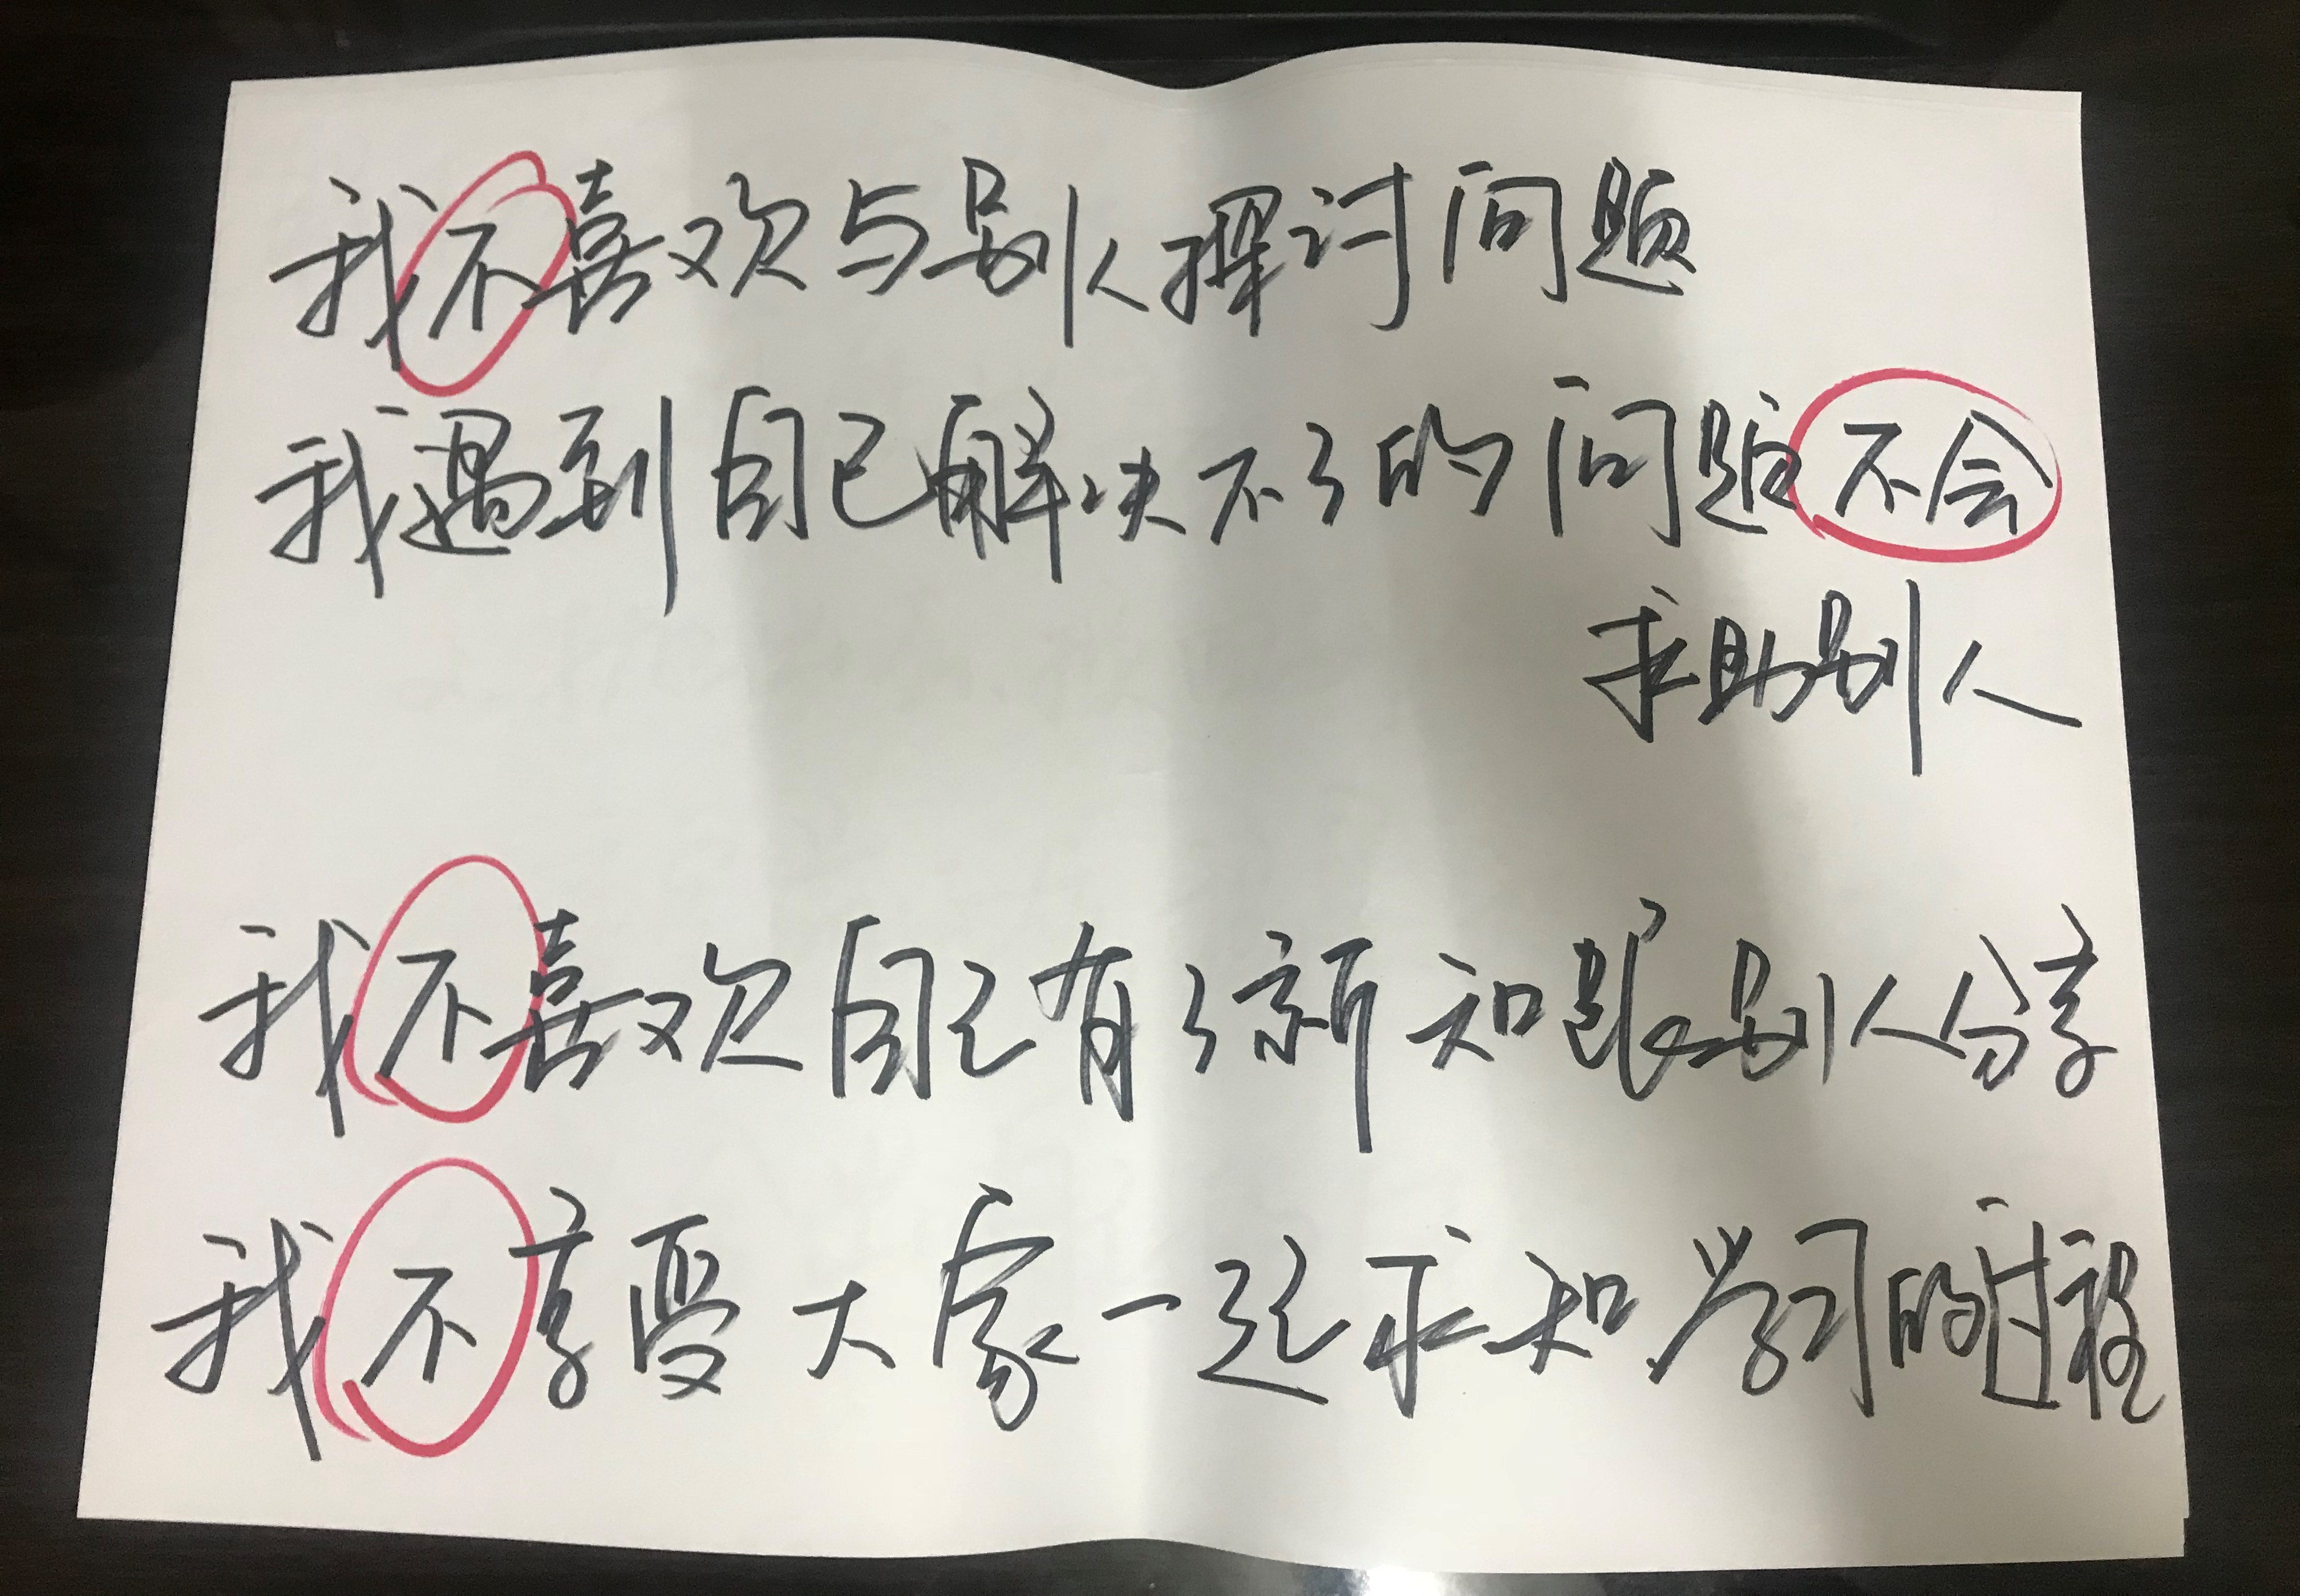 我不喜欢与别人探讨问题
我遇到自己解决不了的问题不会
求助别人
我不喜欢自己有了新知跟别人分享
我不享受大家一起求知学习的过程